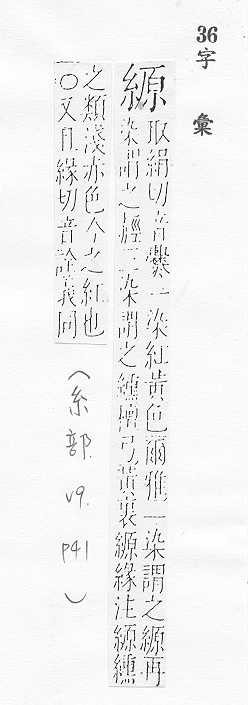 36字 彙
縓 取絹切音㸑一染紅黃色爾雅一染謂之縓再
染謂之赬三染謂之纁檀弓黃裏縓緣注縓纁
之類淺赤色今之紅也
○又且緣切音詮義同
(糸部. v9. p41)